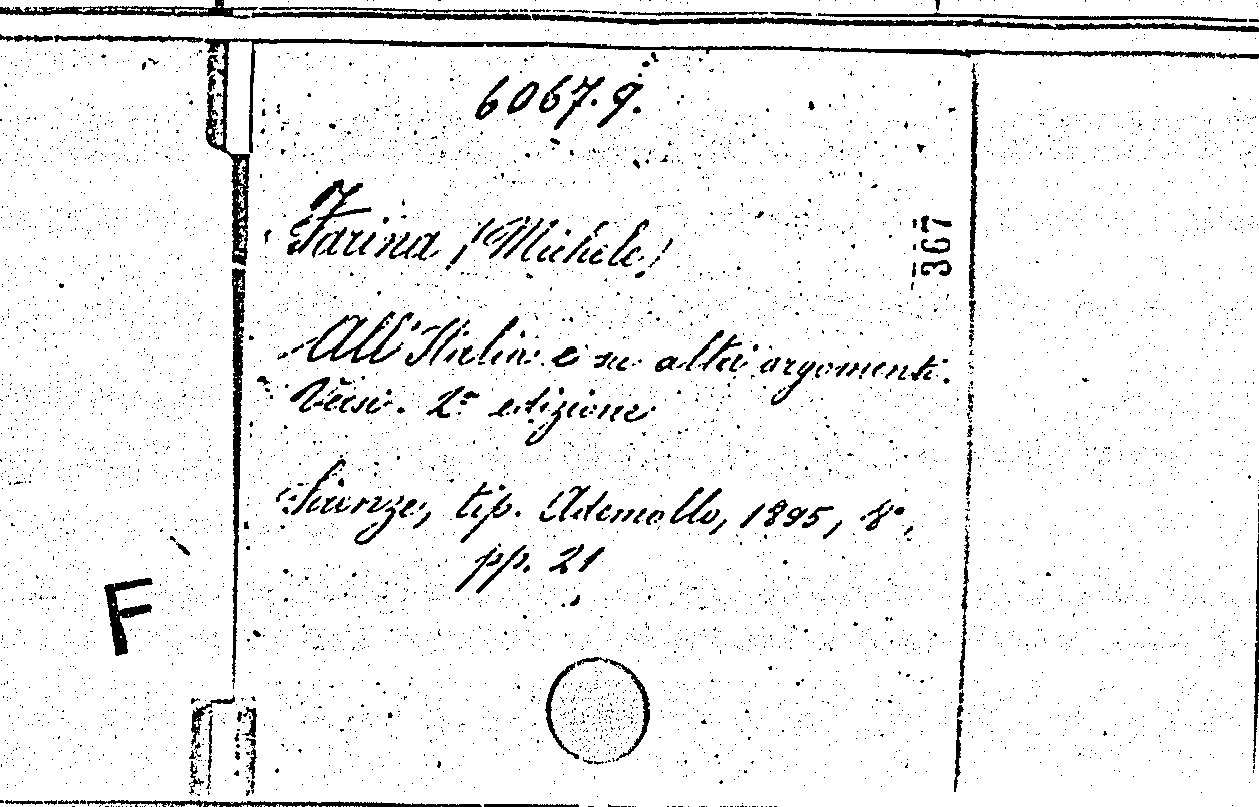 6067.9.
367
Farina (Michele)
All'Italia e su altri argomenti.
Versi. 2ª edizione
Firenze, tip. Ademollo, 1895, 8°,
pp. 21
F